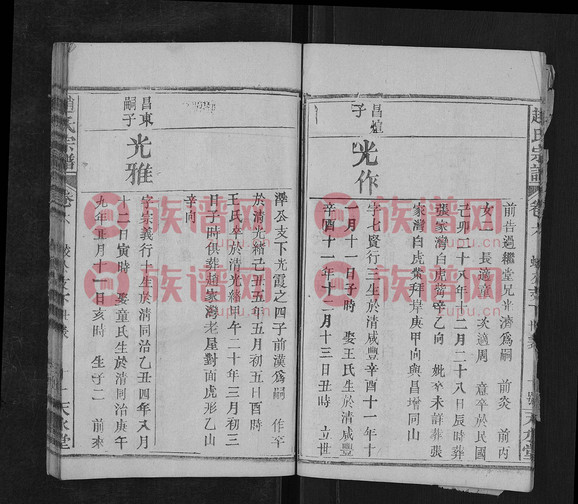 趙氏宗譜
卷六
天水堂
前吿過繼堂兄光濟爲嗣 前炎 前丙
女二 長適童 次適周 意卒於民國
己卯二十八年十二月二十八日辰時葬
張家灣白虎 辛乙向 妣辛未詳葬張
家灣白虎 拜岸庚甲向與昌增同山
昌煊
子
光作
字七賢行三生於清咸豐辛酉十一年十
一月十一日子時 娶王氏生於清咸豐
辛酉十一年十二月十三日丑時 立世
澤公支下光霞之四子前漢爲嗣 作卒
於清光緒己丑五年五月初五日酉時
王氏卒於清光緒甲午二十年三月初三
日子時俱葬趙家灣老屋對面虎形乙山
辛向
昌東
嗣子
光雅
字宗義行十生於清同治乙丑四年八月
十二日寅時 娶童氏生於清同治庚午
九年正月十一日亥時 生子二 前來
趙氏宗譜
卷六
天水堂
族谱网